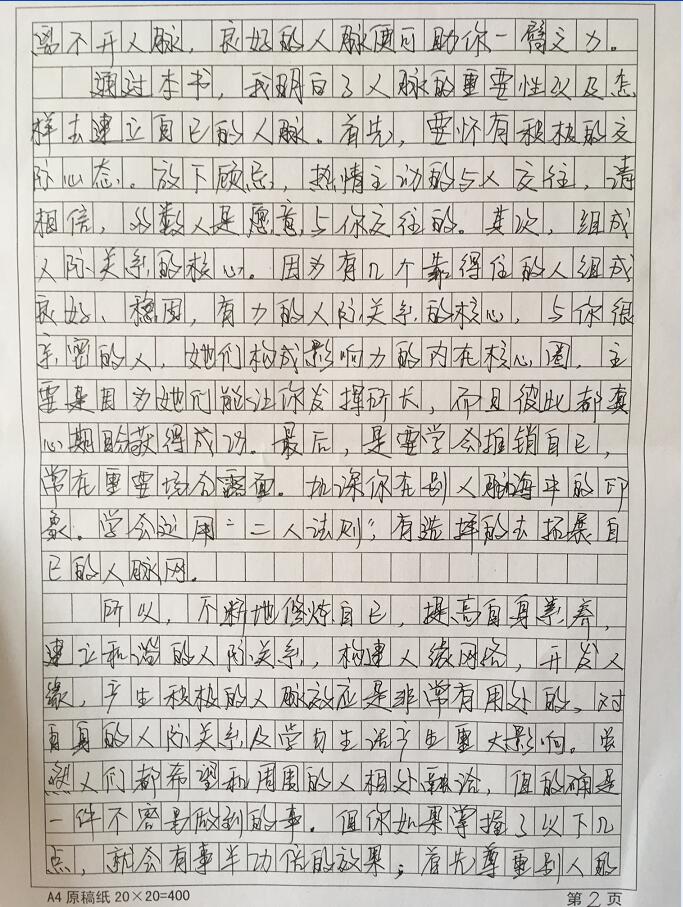 离不开人脉，良好的人脉便可助你一臂之力。
通过本书，我明白了人脉的重要性以及怎
样去建立自己的人脉。首先，要怀有积极的交
际心态。放下顾忌，热情主动的与人交往，请
相信，多数人是愿意与你交往的。其次，组成
人际关系的核心。因为有几个靠得住的人组成
良好、稳固，有力的人际关系的核心，与你很
亲密的人，她们构成影响力的内在核心圈，主
要是因为她们能让你发挥所长，而且彼此都真
心期盼获得成功。最后，是要学会推销自己，
常在重要场合露面。加深你在别人脑海中的印
象。学会运用“二八法则”，有选择的去拓展自
己的人脉网。
所以，不断地修炼自己，提高自身素养，
建立和谐的人际关系，构建人缘网络，开发人
缘，产生积极的人脉效应是非常有用处的、对
自身的人际关系及学习生活产生重大影响。虽
然人们都希望和周围的人相处融洽，但的确是
一件不容易做到的事。但你如果掌握了以下几
点，就会有事半功倍的效果；首先尊重别人的
A4原稿纸 20×20=400 第2页